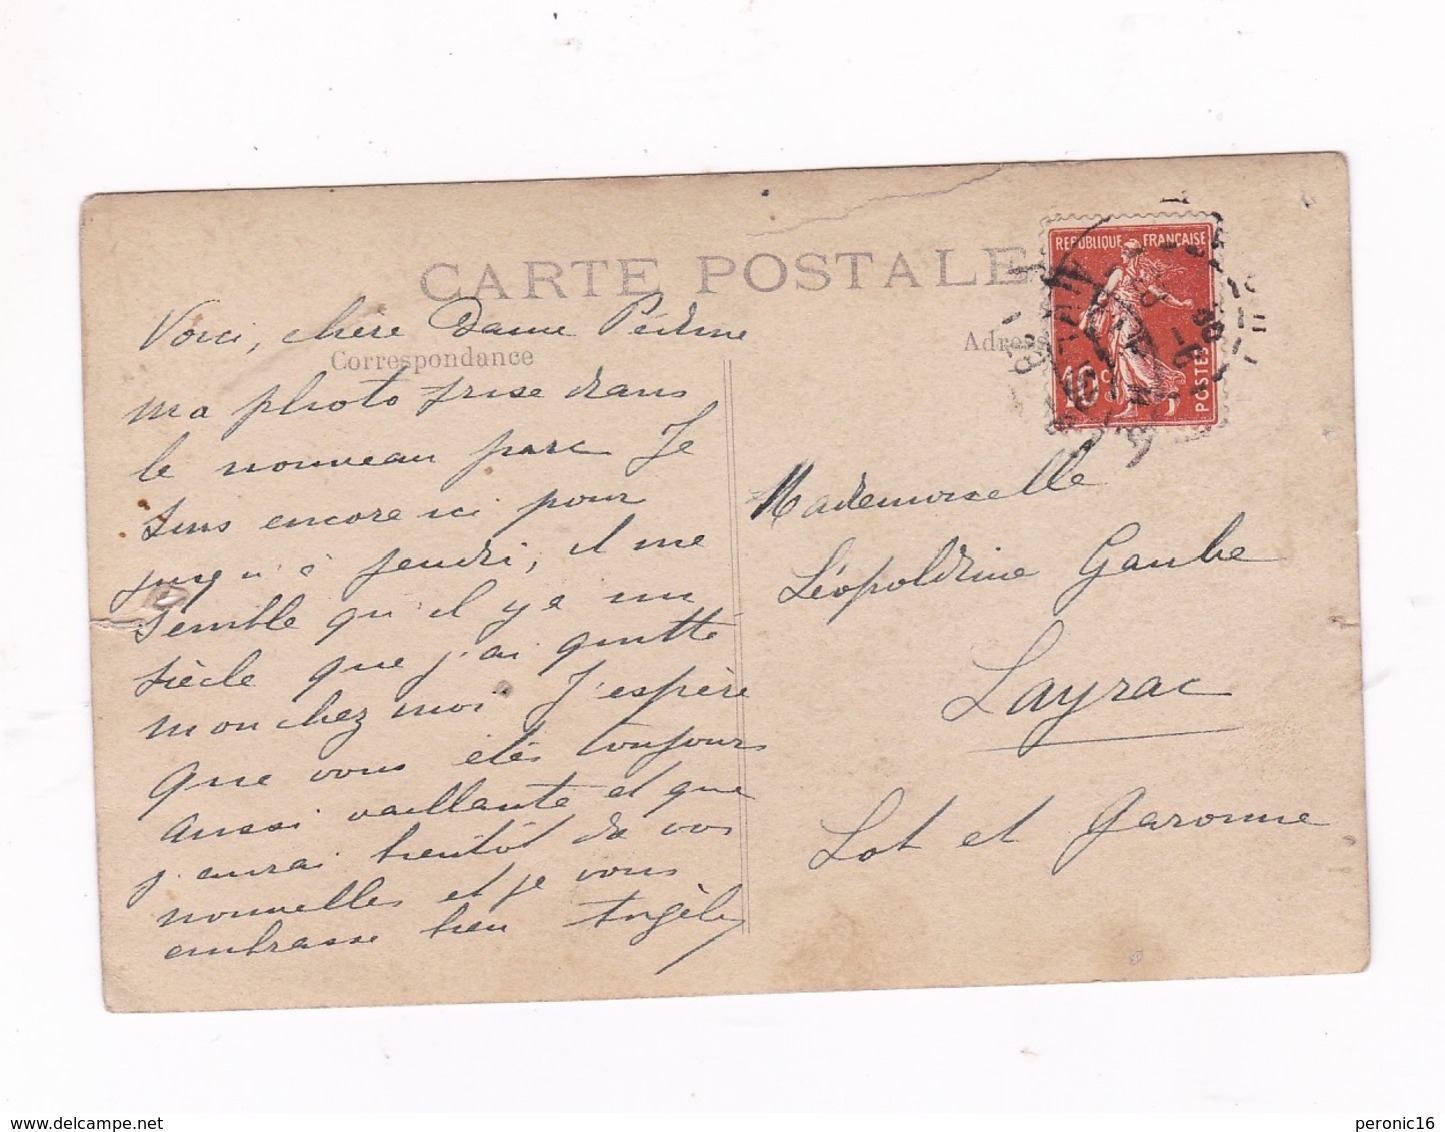 CARTE POSTALE
Correspondance
Adresse
REPUBLIQUE FRANÇAISE
10c
POSTES
Voici, chère Dame
ma photo prise dans
le nouveau parc Je
suis encore ici pour
jusqu'à jeudi, il me
semble qu'il y a un
siècle que j'ai quitté
mon chez moi J'espère
que vous êtes toujours
aussi vaillante et que
j'aurai bientôt de vos
nouvelles et je vous
embrasse bien Angèle
Mademoiselle
Léopoldine Gaube
Layrac
Lot et Garonne
www.delcampe.net
peronic16